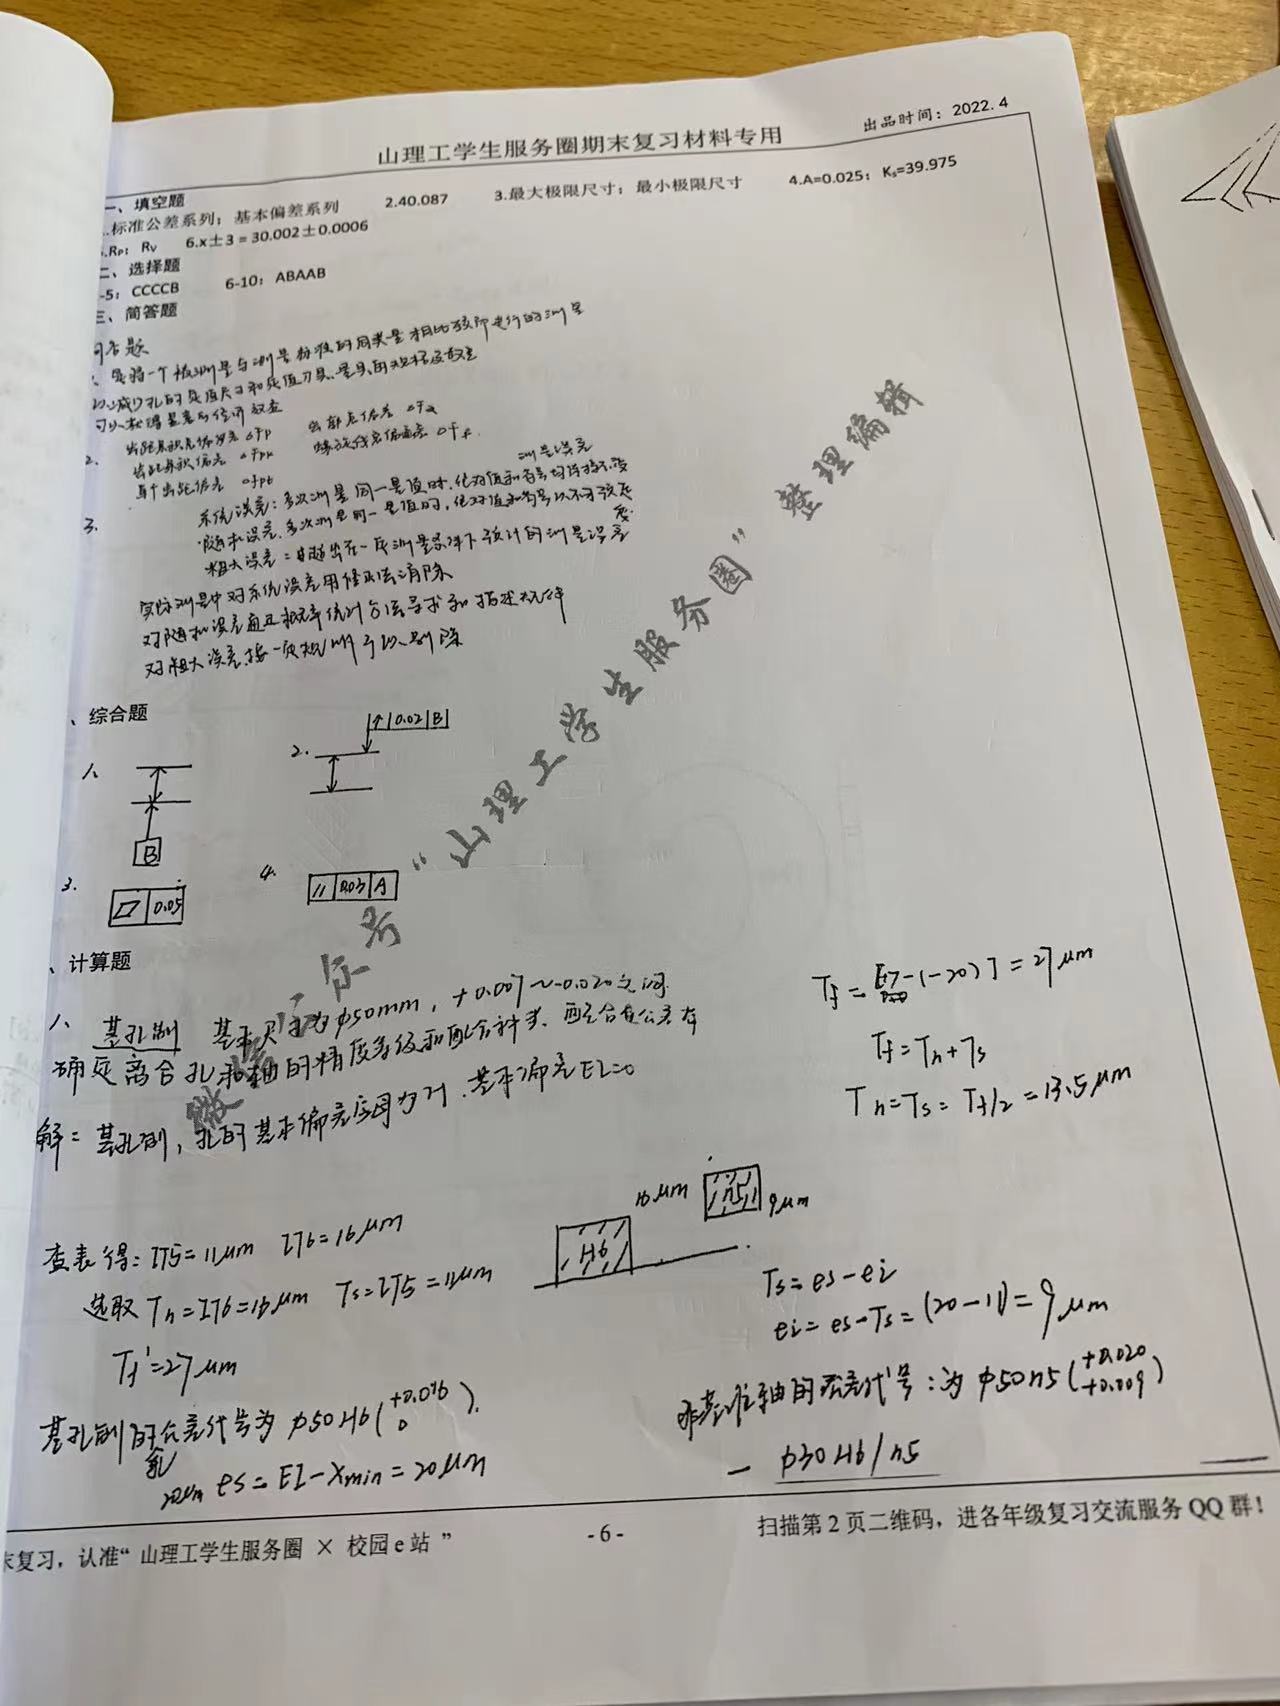 出品时间：2022.4
山理工学生服务圈期末复习材料专用
一、填空题
.标准公差系列；基本偏差系列 2.40.087 3.最大极限尺寸；最小极限尺寸 4.A=0.025；Kₛ=39.975
.Rₚ；Rᵥ 6.x±3＝30.002±0.0006
二、选择题
-5：CCCCB 6-10：ABAAB
三、简答题
问答题
是指一个被测量与测量标准的同类量相比较所进行的测量
减少孔的定值尺寸和定值刀具、量具的规格及数量
可以获得显著的经济效益
2. 齿距累积总偏差 △Fp 齿廓总偏差 △Fα
齿距累积偏差 △Fpk 螺旋线总偏差 △Fβ.
单个齿距偏差 △fpt
测量误差
3. 系统误差：多次测量同一量值时，绝对值和符号均保持不变
随机误差：多次测量同一量值时，绝对值和符号以不可预定
变
粗大误差：超出在一定测量条件下预计的测量误差
实际测量中对系统误差用修正法消除
对随机误差通过概率统计方法寻求和描述规律
对粗大误差按一定规则予以剔除
、综合题
1.
B
2.
↑ 0.02 B
3.
▱ 0.05
4.
// 0.03 A
微信公众号“山理工学生服务圈”整理编辑
、计算题
1、基孔制 基本尺寸为φ50mm，+0.007～-0.020之间
确定离合孔和轴的精度等级和配合种类、配合有公差带
解：基孔制，孔的基本偏差应用为H.基本偏差EI=0
Tf = [+7-(-20)] = 27μm
Tf = Th+Ts
Th=Ts= Tf/2 = 13.5μm
查表得：IT5=11μm IT6=16μm
选取 Th=IT6=16μm Ts=IT5=11μm
Tf'=27μm
H6
16μm
n5
9μm
基孔制的公差代号为 φ50H6(+0.016 0).
孔
20μm es = EI-Xmin = 20μm
Ts = es-ei
ei = es-Ts = (20-11) = 9μm
非基准轴的公差代号：为 φ50n5(+0.020 +0.009)
— φ30H6/n5
末复习，认准“山理工学生服务圈 × 校园e站 ” -6- 扫描第2页二维码，进各年级复习交流服务QQ群！